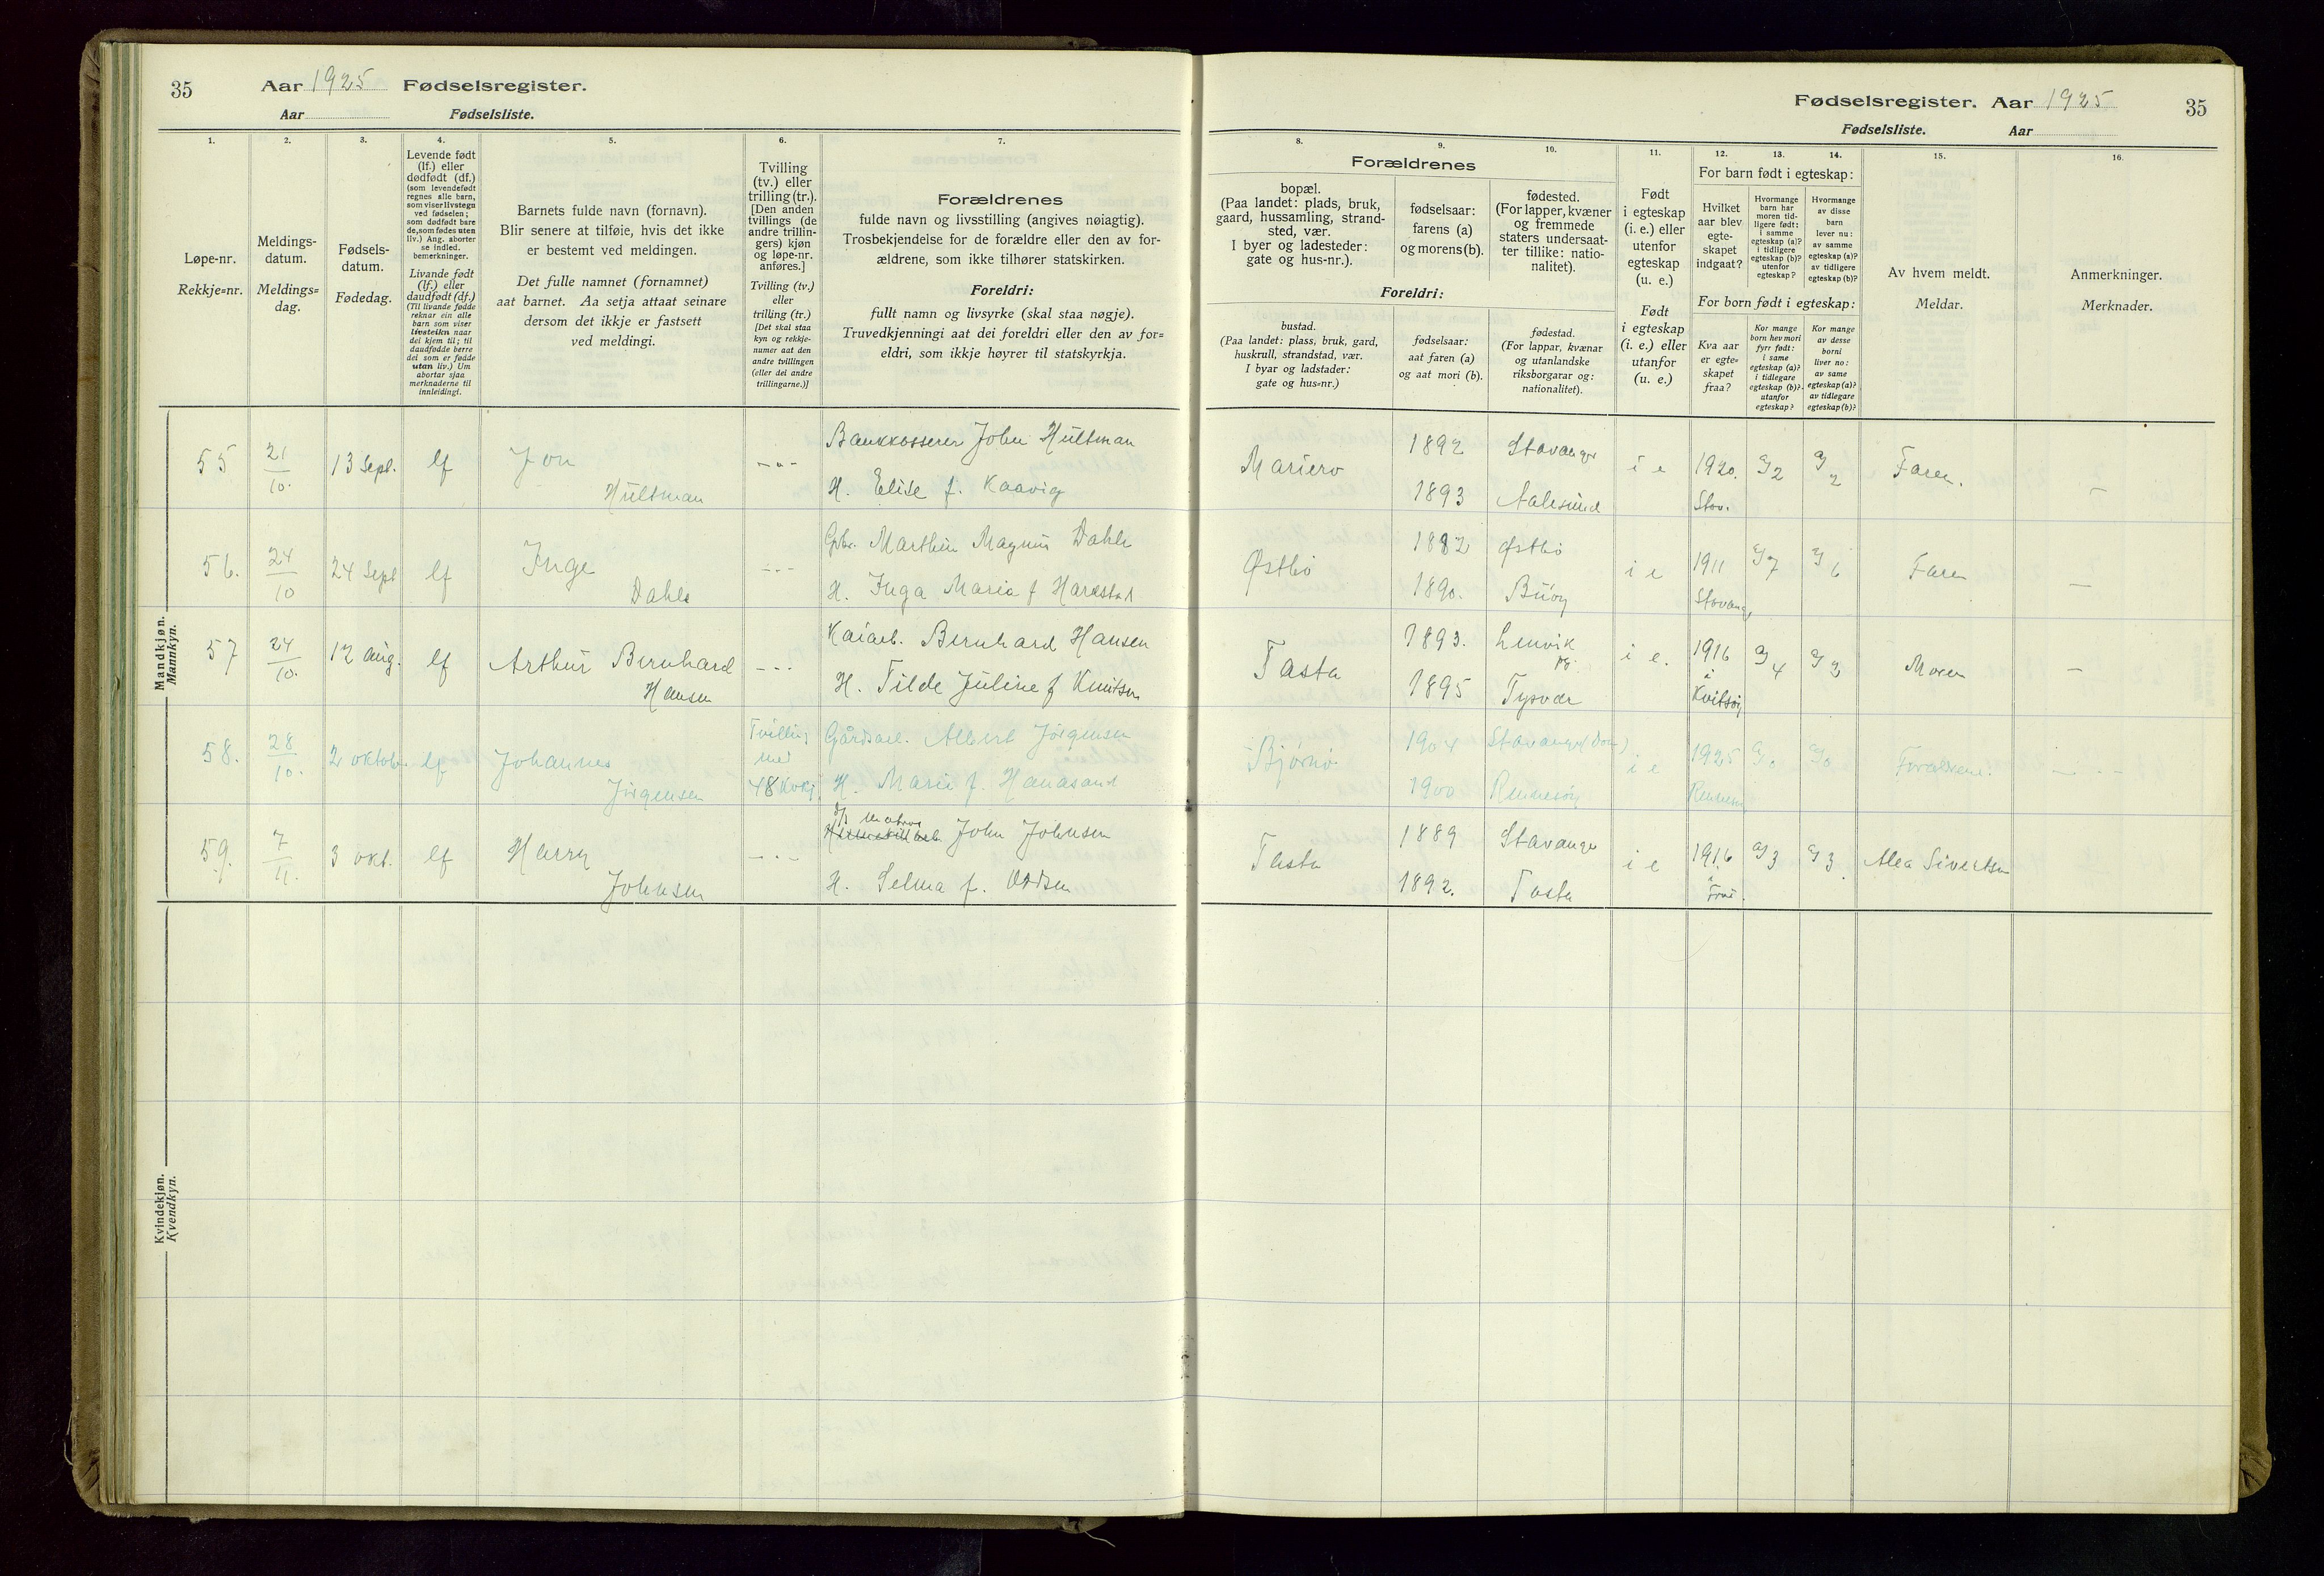 35
Aar 1925 Fødselsregister.
Aar Fødselsliste.
Fødselsregister. Aar 1925
35
Fødselsliste. Aar
1.
2.
3.
4.
5.
6.
7.
8.
9.
10.
11.
12.
13.
14.
15.
16.
Løpe-nr.
Rekkje=nr.
Meldings-
datum.
Meldings=
dag.
Fødsels-
datum.
Fødedag.
Levende født
(lf.) eller
dødfødt (df.)
(som levendefødt
regnes alle barn,
som viser livstegn
ved fødselen;
som dødfødt bare
de, som fødes uten
liv.) Ang. aborter
se indled.
bemerkninger.
Livande født
(lf.) eller
daudfødt (df.)
(Til livande fødde
reknar ein alle
barn som viser
livsteikn naar
dei kjem til; til
daudfødde berre
dei som er fødde
utan liv.) Um
abortar sjaa
merknaderne til
innleidingi.
Barnets fulde navn (fornavn).
Blir senere at tilføie, hvis det ikke
er bestemt ved meldingen.
Det fulle namnet (fornamnet)
aat barnet. Aa setja attaat seinare
dersom det ikkje er fastsett
ved meldingi.
Tvilling
(tv.) eller
trilling (tr.).
[Den anden
tvillings (de
andre trillin-
gers) kjøn
og løpe-nr.
anføres.]
Tvilling (tv.)
eller
trilling (tr.)
[Det skal staa
kyn og rekkje-
numer aat den
andre tvillingen
(eller dei andre
trillingarne.)]
Forældrenes
fulde navn og livsstilling (angives nøiagtig).
Trosbekjendelse for de forældre eller den av for-
ældrene, som ikke tilhører statskirken.
Foreldri:
fullt namn og livsyrke (skal staa nøgje).
Truvedkjenningi aat dei foreldri eller den av for=
eldri, som ikkje høyrer til statskyrkja.
Forældrenes
bopæl.
(Paa landet: plads, bruk,
gaard, hussamling, strand-
sted, vær.
I byer og ladesteder:
gate og hus-nr.).
fødselsaar:
farens (a)
og morens (b).
fødested.
(For lapper, kvæner
og fremmede
staters undersaat-
ter tillike: natio-
nalitet).
Foreldri:
bustad.
(Paa landet: plass, bruk, gard,
huskrull, strandstad, vær.
I byar og ladstader:
gate og hus=nr.)
fødselsaar:
aat faren (a)
og aat mori (b).
fødestad.
(For lappar, kvænar
og utanlandske
riksborgarar og:
nationalitet).
Født
i egteskap
(i. e.) eller
utenfor
egteskap
(u. e.)
Født
i egteskap
(i. e.) eller
utanfor
(u. e.)
For barn født i egteskap:
Hvilket
aar blev
egte-
skapet
indgaat?
Hvormange
barn har
moren tid-
ligere født:
i samme
egteskap (a)?
i tidligere
egteskap (b)?
utenfor
egteskap?
Hvormange
av disse
barn
lever nu:
av samme
egteskap (a)?
av tidligere
egteskap (b)?
For born født i egteskap:
Kva aar
er egte=
skapet
fraa?
Kor mange
born hev mori
fyrr født:
i same
egteskap (a)?
i tidlegare
egteskap (b)?
utanfor
egteskap?
Kor mange
av desse
borni
liver no:
av same
egteskap (a)?
av tidlegare
egteskap (b)?
Av hvem meldt.
Meldar.
Anmerkninger.
Merknader.
Mandkjøn.
Mannkyn.
55 21/10. 13 Sept. lf Jon Hultman Bankkasserer John Hultman
H. Elise f. Kaavig
Mariero 1892 Stavanger i e 1920. a/2 a/2 Faren. —
1893 Aalesund Stav.
56. 24/10 24 Sept lf Inge Dahle Gbr. Marthin Magnus Dahle
H. Inga Maria f Harestad
Østbø 1882 Østbø i e 1911 a/7 a/6 Faren —
1890. Buøy Stavanger
57 24/10. 12 aug. lf Arthur Bernhard Hansen Kaiarb. Bernhard Hansen
H. Tilde Juline f Knutsen
Tasta 1893. Lenvik i e. 1916 a/4 a/3 Moren —
1895 Tysvær i Kvitsøy
58. 28/10. 2 oktob. lf Johannes Jörgensen Tvilling med 48 Kvkj. Gårdsarb. Albert Jörgensen
H. Marie f. Hanasand
Bjørnø 1904 Stavanger (Dom) i e 1925 a/0 a/0 Forældrene.
1900 Rennesöy Rennesöy
59. 7/11. 3 okt. lf Harry Johnsen D/S Matros John Johnsen
H. Selma f. Oddsen
Tasta 1889 Stavanger i e 1916 a/3 a/3. Alea Sivertsen
1892. Tasta
Kvindekjøn.
Kvendkyn.